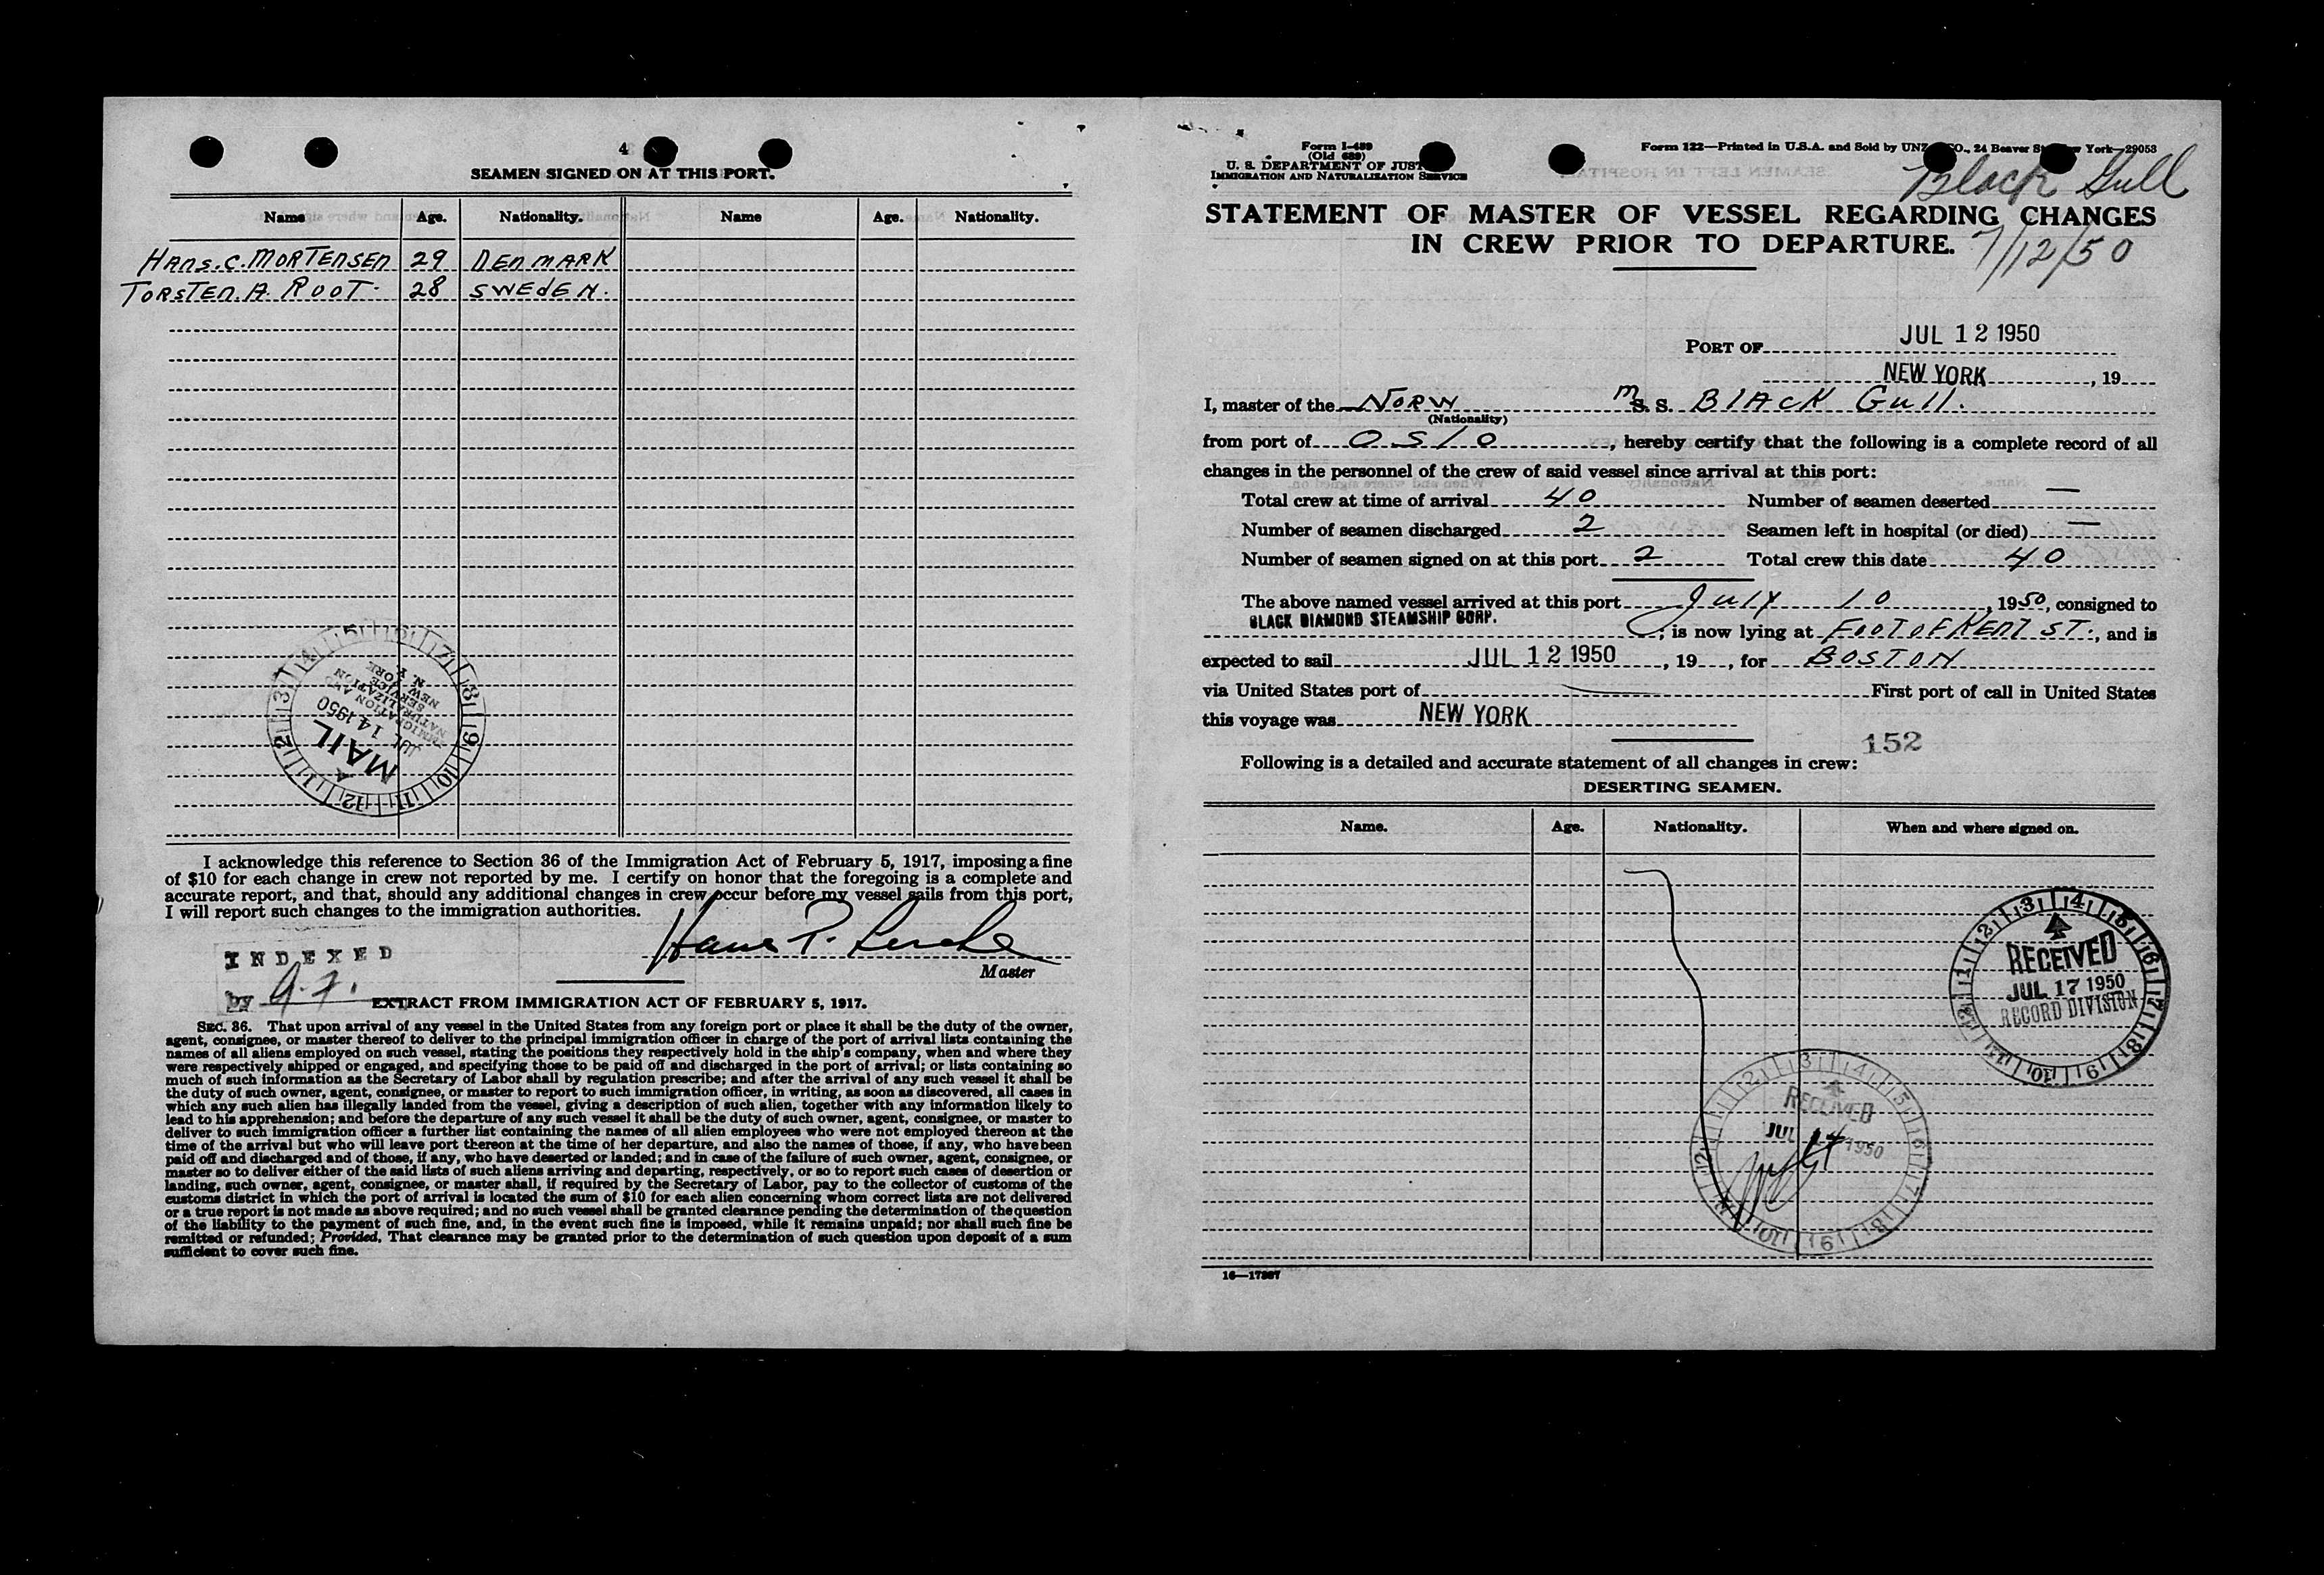 4
SEAMEN SIGNED ON AT THIS PORT.
Name Age. Nationality. Name Age. Nationality.
HANS. C. MORTENSEN 29 DENMARK
TORSTEN. A. ROOT. 28 SWEDEN.
MAIL
JUL 14 1950
IMMIGRATION AND
NATURALIZATION
SERVICE
NEW YORK
N. Y.
I acknowledge this reference to Section 36 of the Immigration Act of February 5, 1917, imposing a fine
of $10 for each change in crew not reported by me. I certify on honor that the foregoing is a complete and
accurate report, and that, should any additional changes in crew occur before my vessel sails from this port,
I will report such changes to the immigration authorities.
Hans P.
Master
INDEXED
by
EXTRACT FROM IMMIGRATION ACT OF FEBRUARY 5, 1917.
SEC. 36. That upon arrival of any vessel in the United States from any foreign port or place it shall be the duty of the owner,
agent, consignee, or master thereof to deliver to the principal immigration officer in charge of the port of arrival lists containing the
names of all aliens employed on such vessel, stating the positions they respectively hold in the ship's company, when and where they
were respectively shipped or engaged, and specifying those to be paid off and discharged in the port of arrival; or lists containing so
much of such information as the Secretary of Labor shall by regulation prescribe; and after the arrival of any such vessel it shall be
the duty of such owner, agent, consignee, or master to report to such immigration officer, in writing, as soon as discovered, all cases in
which any such alien has illegally landed from the vessel, giving a description of such alien, together with any information likely to
lead to his apprehension; and before the departure of any such vessel it shall be the duty of such owner, agent, consignee, or master to
deliver to such immigration officer a further list containing the names of all alien employees who were not employed thereon at the
time of the arrival but who will leave port thereon at the time of her departure, and also the names of those, if any, who have been
paid off and discharged and of those, if any, who have deserted or landed; and in case of the failure of such owner, agent, consignee, or
master so to deliver either of the said lists of such aliens arriving and departing, respectively, or so to report such cases of desertion or
landing, such owner, agent, consignee, or master shall, if required by the Secretary of Labor, pay to the collector of customs of the
customs district in which the port of arrival is located the sum of $10 for each alien concerning whom correct lists are not delivered
or a true report is not made as above required; and no such vessel shall be granted clearance pending the determination of the question
of the liability to the payment of such fine, and, in the event such fine is imposed, while it remains unpaid; nor shall such fine be
remitted or refunded; Provided, That clearance may be granted prior to the determination of such question upon deposit of a sum
sufficient to cover such fine.
Form I-489
(Old 689)
U. S. DEPARTMENT OF JUST
IMMIGRATION AND NATURALIZATION SERVICE
Form 122—Printed in U.S.A. and Sold by UNZ CO., 24 Beaver St York—29053
Black Gull
STATEMENT OF MASTER OF VESSEL REGARDING CHANGES
IN CREW PRIOR TO DEPARTURE.
7/12/50
PORT OF JUL 12 1950
NEW YORK, 19
I, master of the NORW M S. S. BLACK GULL.
(Nationality)
from port of OSLO, hereby certify that the following is a complete record of all
changes in the personnel of the crew of said vessel since arrival at this port:
Total crew at time of arrival 40 Number of seamen deserted —
Number of seamen discharged 2 Seamen left in hospital (or died) —
Number of seamen signed on at this port 2 Total crew this date 40
The above named vessel arrived at this port July 10, 1950, consigned to
BLACK DIAMOND STEAMSHIP CORP.; is now lying at FOOT OF KENT ST., and is
expected to sail JUL 12 1950, 19, for BOSTON
via United States port of — First port of call in United States
this voyage was NEW YORK
152
Following is a detailed and accurate statement of all changes in crew:
DESERTING SEAMEN.
Name. Age. Nationality. When and where signed on.
RECEIVED
JUL 17 1950
RECORD DIVISION
RECEIVED
JUL 14 1950
16—17387